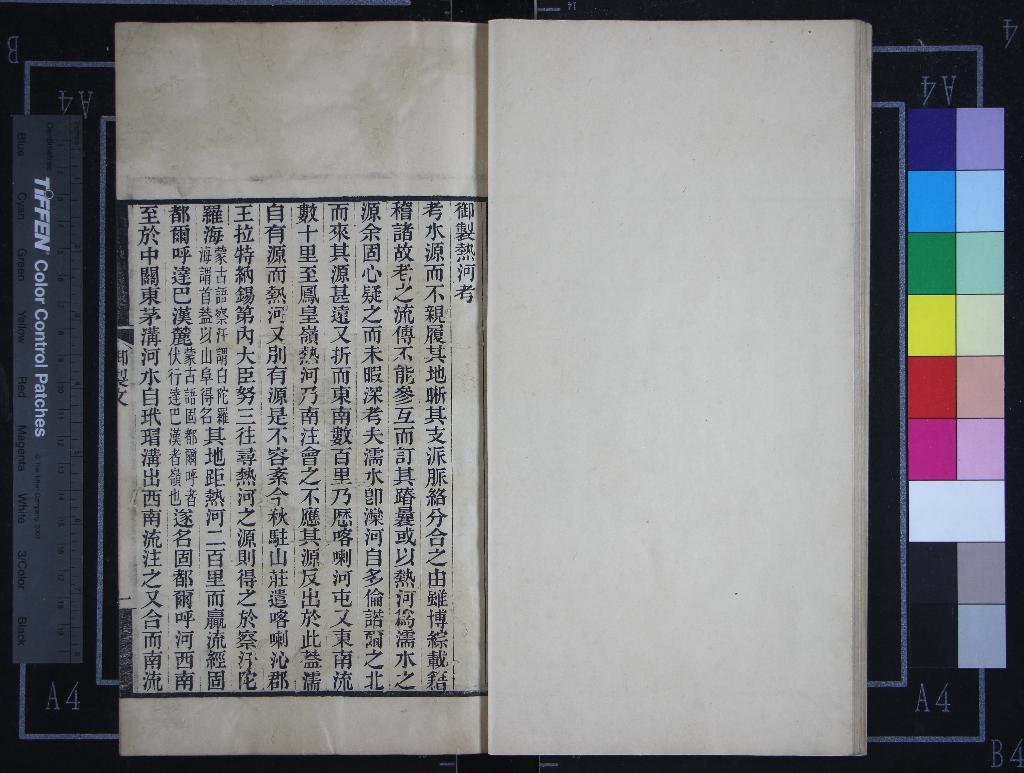 御製熱河考
考水源而不親履其地晰其支派脈絡分合之由雖博綜載籍
稽諸故老之流傳不能參互而訂其踳舛或以熱河為濡水之
源余固心疑之而未暇深考夫濡水卽灤河自多倫諾爾之北
而來其源甚遠又折而東南數百里乃歷喀喇河屯又東南流
數十里至鳳皇嶺熱河乃南注會之不應其源反出於此葢濡
自有源而熱河又別有源是不容紊今秋駐山莊遣喀喇沁郡
王拉特納錫第內大臣努三往尋熱河之源則得之於察汗陀
羅海蒙古語察汗謂白陀羅海謂首葢以山阜得名其地距熱河二百里而贏流經固
都爾呼達巴漢麓蒙古語固都爾呼者伏行達巴漢者嶺也遂名固都爾呼河西南
至於中關東茅溝河水自玳瑁溝出西南流注之又合而南流
御製文
一
TIFFEN Color Control Patches
Centimetres
Blue
Cyan
Green
Yellow
Red
Magenta
White
3/Color
Black
© The Tiffen Company, 2007
A4
A4
A4
A4
B
4
B4